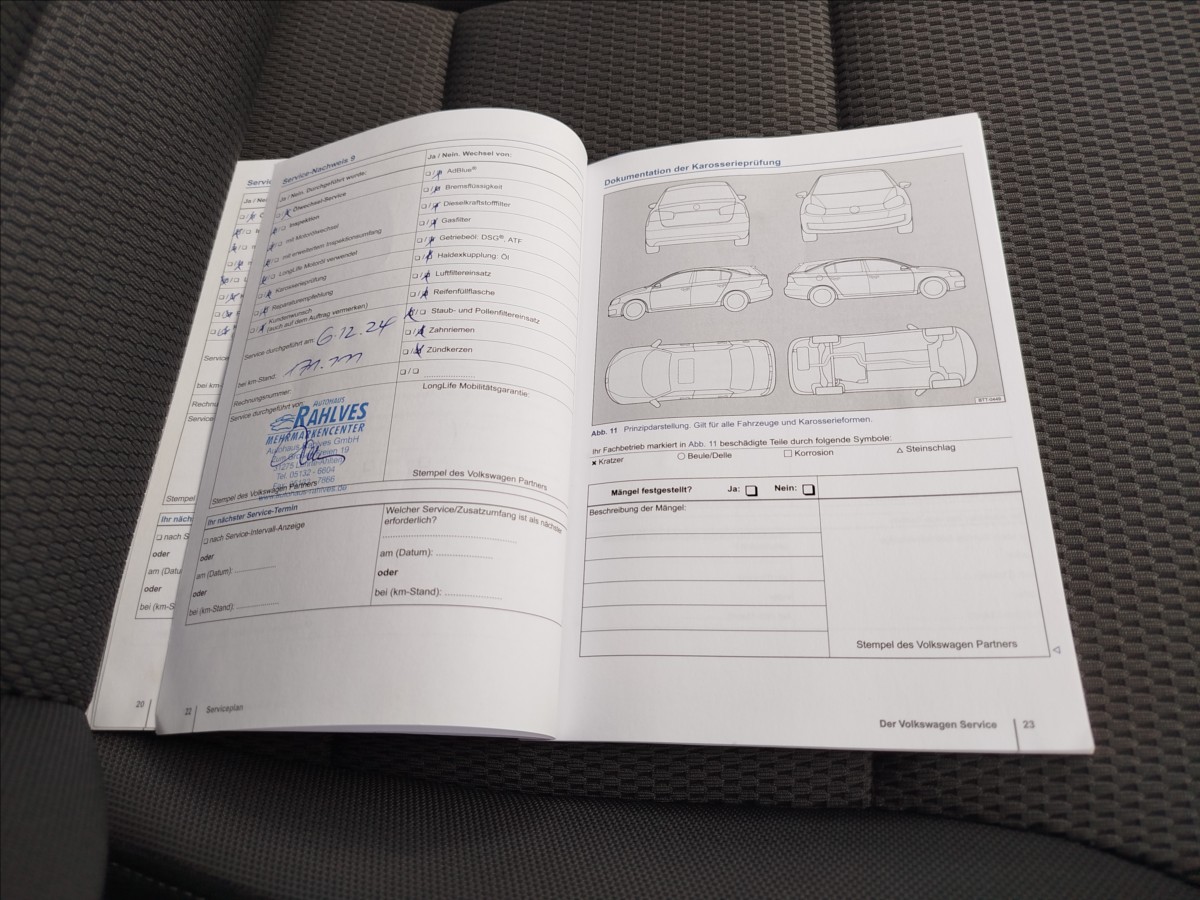 Servic
Ja / Nei
Service
bei km-
Rechnu
Service
Stempel
Ihr näch
❑ nach S
oder
am (Datu
oder
bei (km-S
20
Service-Nachweis 9
Ja / Nein. Durchgeführt wurde:
Ölwechsel-Service
Inspektion
mit Motorölwechsel
mit erweitertem Inspektionsumfang
LongLife Motoröl verwendet
Karosserieprüfung
Reparaturempfehlung
Kundenwunsch
(auch auf dem Auftrag vermerken)
Service durchgeführt am: 6.12.24
bei km-Stand:
Rechnungsnummer
Service durchgeführt von:
AUTOHAUS
RAHLVES
MEHRMARKENCENTER
Autohaus Rahlves GmbH
Tel. 05132 - 6604
www.autohaus-rahlves.de
Stempel des Volkswagen Partners
Ja / Nein. Wechsel von:
AdBlue®
Bremsflüssigkeit
Dieselkraftstofffilter
Gasfilter
Getriebeöl: DSG®, ATF
Haldexkupplung: Öl
Luftfiltereinsatz
Reifenfüllflasche
Staub- und Pollenfiltereinsatz
Zahnriemen
Zündkerzen
❑ / ❑
LongLife Mobilitätsgarantie:
Stempel des Volkswagen Partners
Ihr nächster Service-Termin
❑ nach Service-Intervall-Anzeige
oder
am (Datum):
oder
bei (km-Stand):
Welcher Service/Zusatzumfang ist als nächster
erforderlich?
am (Datum):
oder
bei (km-Stand):
22 Serviceplan
Dokumentation der Karosserieprüfung
Abb. 11 Prinzipdarstellung. Gilt für alle Fahrzeuge und Karosserieformen.
Ihr Fachbetrieb markiert in Abb. 11 beschädigte Teile durch folgende Symbole:
× Kratzer ○ Beule/Delle □ Korrosion △ Steinschlag
Mängel festgestellt? Ja: ❑ Nein: ❑
Beschreibung der Mängel:
Stempel des Volkswagen Partners
Der Volkswagen Service 23